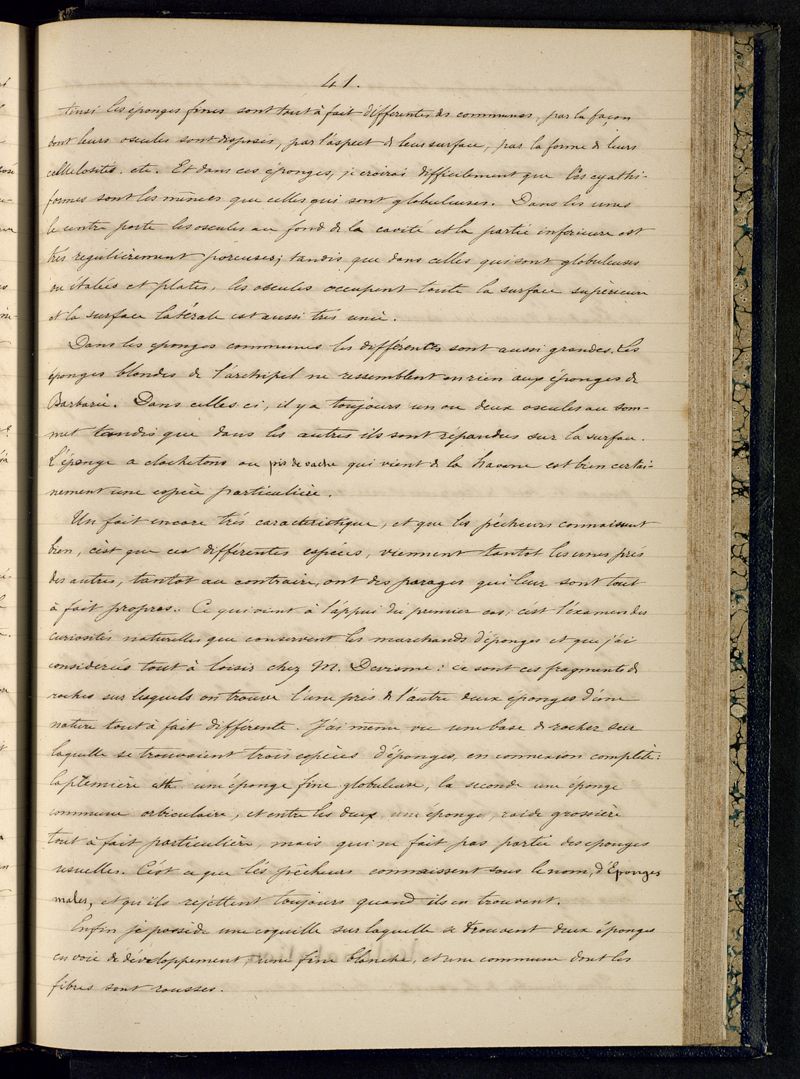 41.
Ainsi les éponges fines sont tout à fait différentes des communes, par la façon
dont leurs oscules sont disposés, par l'aspect de leur surface, par la forme de leurs
cellulosités. etc. Et dans ces éponges, je croirai difficilement que les cyathi-
formes sont les mêmes que celles qui sont globuleuses. Dans les unes
le centre porte les oscules au fond de la cavité et la partie inférieure est
très regulièrement poreuses; tandis que dans celles qui sont globuleuses
ou étalées et plates, les oscules occupent toute la surface supèrieure
et la surface latérale est aussi très unie.
Dans les éponges communes les différences sont aussi grandes. Les
éponges blondes de l'archipel ne ressemblent en rien aux éponges de
Barbarie. Dans celles ci, il y a toujours un ou deux oscules au som-
met tandis que dans les autres ils sont répandus sur la surface.
L'éponge a clochetons ou pis de vache qui vient de la havane est bien certai-
nement une espèce particulière.
Un fait encore très caracteristique, et que les pêcheurs connaissent
bien, c'est que ces différentes espèces, viennent tantot les unes près
des autres, tantot au contraire, ont des parages qui leur sont tout
à fait propres. Ce qui vient à l'appui du premier cas, c'est l'examen des
curiosités naturelles que conservent les marchands d'éponges et que j'ai
considerées tout à loisir chez M. Devisme: ce sont ces fragments de
roches sur lesquels on trouve l'une près de l'autre deux éponges d'une
nature tout à fait différente. J'ai même vu une base de rocher sur
laquelle se trouvaient trois espèces d'éponges, en connexion complète:
la première était une éponge fine globuleuse, la seconde une éponge
commune orbiculaire, et entre les deux, une éponge, raide grossière
tout à fait particulière, mais qui ne fait pas partie des eponges
usuelles. C'est ce que les pêcheurs connaissent sous le nom, d'Eponges
males, et qu'ils rejettent toujours quand ils en trouvent.
Enfin je possède une coquille sur laquelle se trouvent deux éponges
en voie de développement, une fine blanche, et une commune dont les
fibres sont rousses.